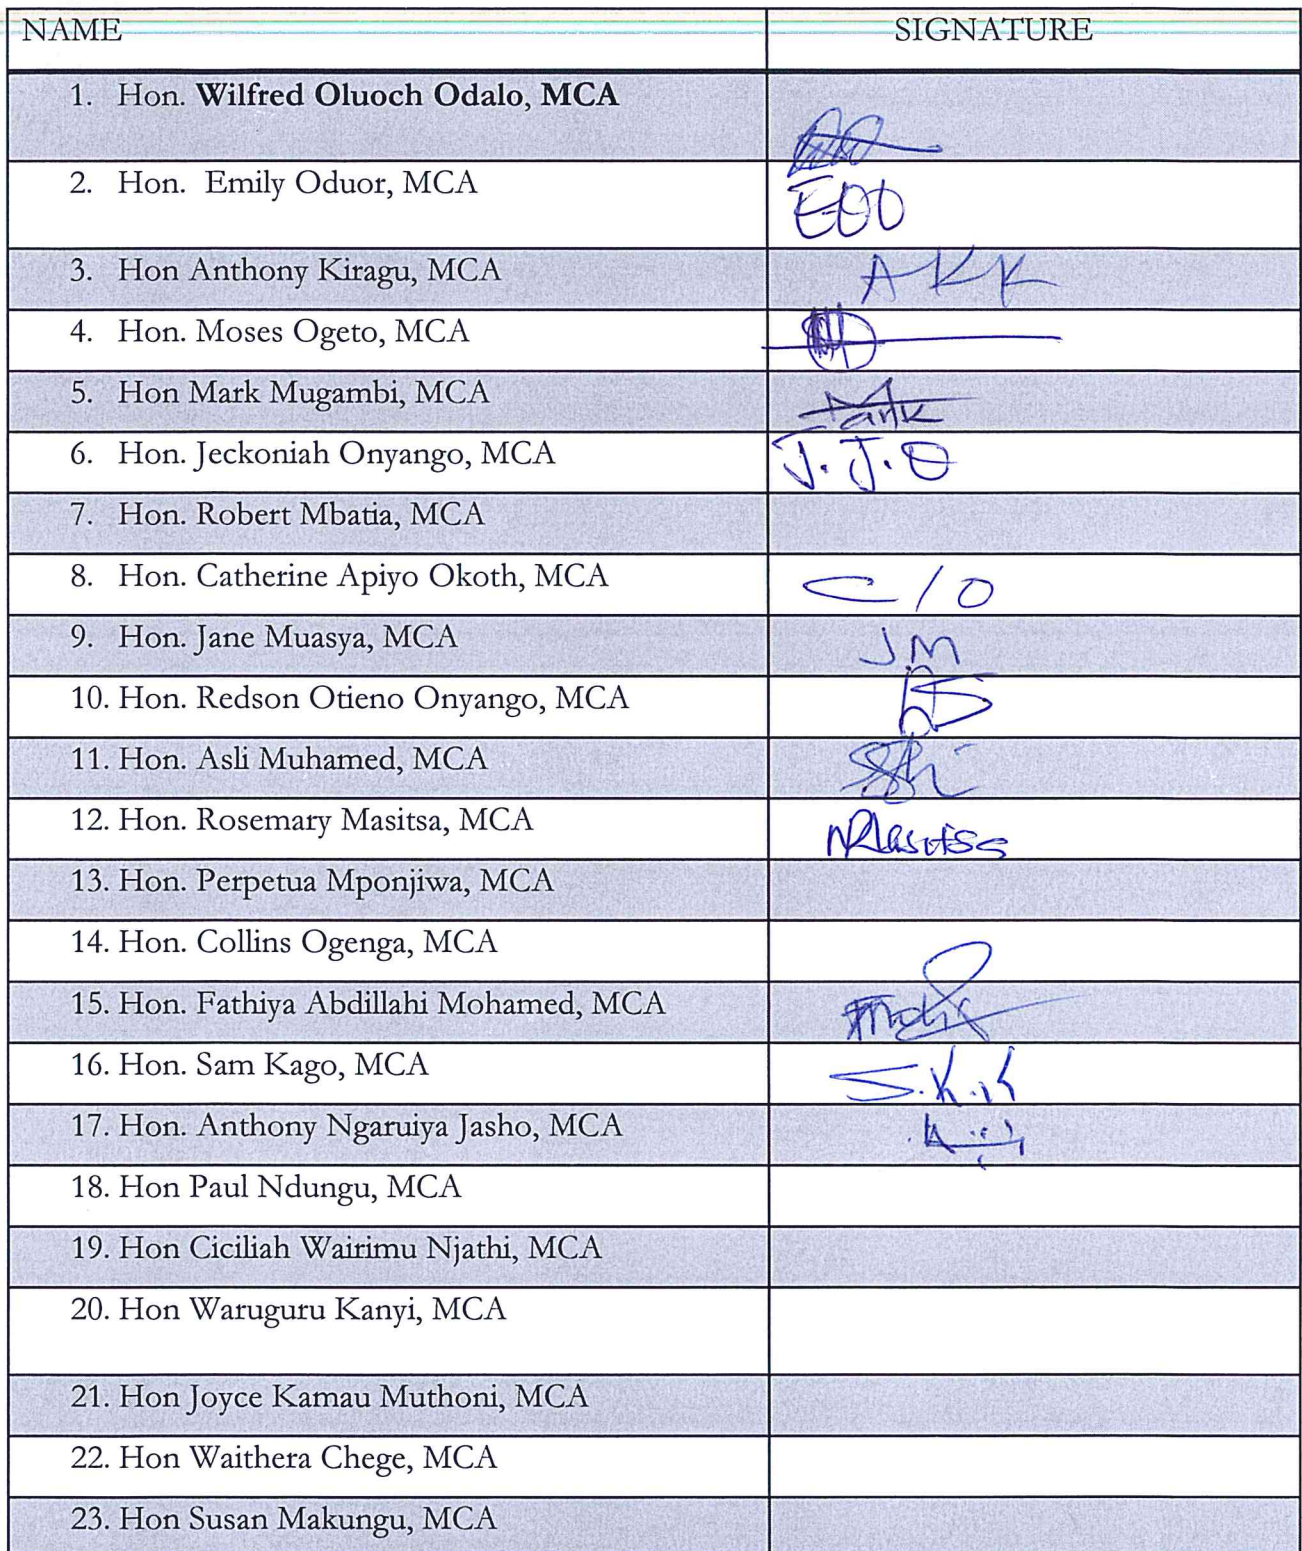 NAME SIGNATURE
1. Hon. Wilfred Oluoch Odalo, MCA
2. Hon. Emily Oduor, MCA EOO
3. Hon Anthony Kiragu, MCA AKK
4. Hon. Moses Ogeto, MCA
5. Hon Mark Mugambi, MCA Mark
6. Hon. Jeckoniah Onyango, MCA J.J.O
7. Hon. Robert Mbatia, MCA
8. Hon. Catherine Apiyo Okoth, MCA C/O
9. Hon. Jane Muasya, MCA JM
10. Hon. Redson Otieno Onyango, MCA
11. Hon. Asli Muhamed, MCA
12. Hon. Rosemary Masitsa, MCA
13. Hon. Perpetua Mponjiwa, MCA
14. Hon. Collins Ogenga, MCA
15. Hon. Fathiya Abdillahi Mohamed, MCA
16. Hon. Sam Kago, MCA S.K.K
17. Hon. Anthony Ngaruiya Jasho, MCA
18. Hon Paul Ndungu, MCA
19. Hon Ciciliah Wairimu Njathi, MCA
20. Hon Waruguru Kanyi, MCA
21. Hon Joyce Kamau Muthoni, MCA
22. Hon Waithera Chege, MCA
23. Hon Susan Makungu, MCA